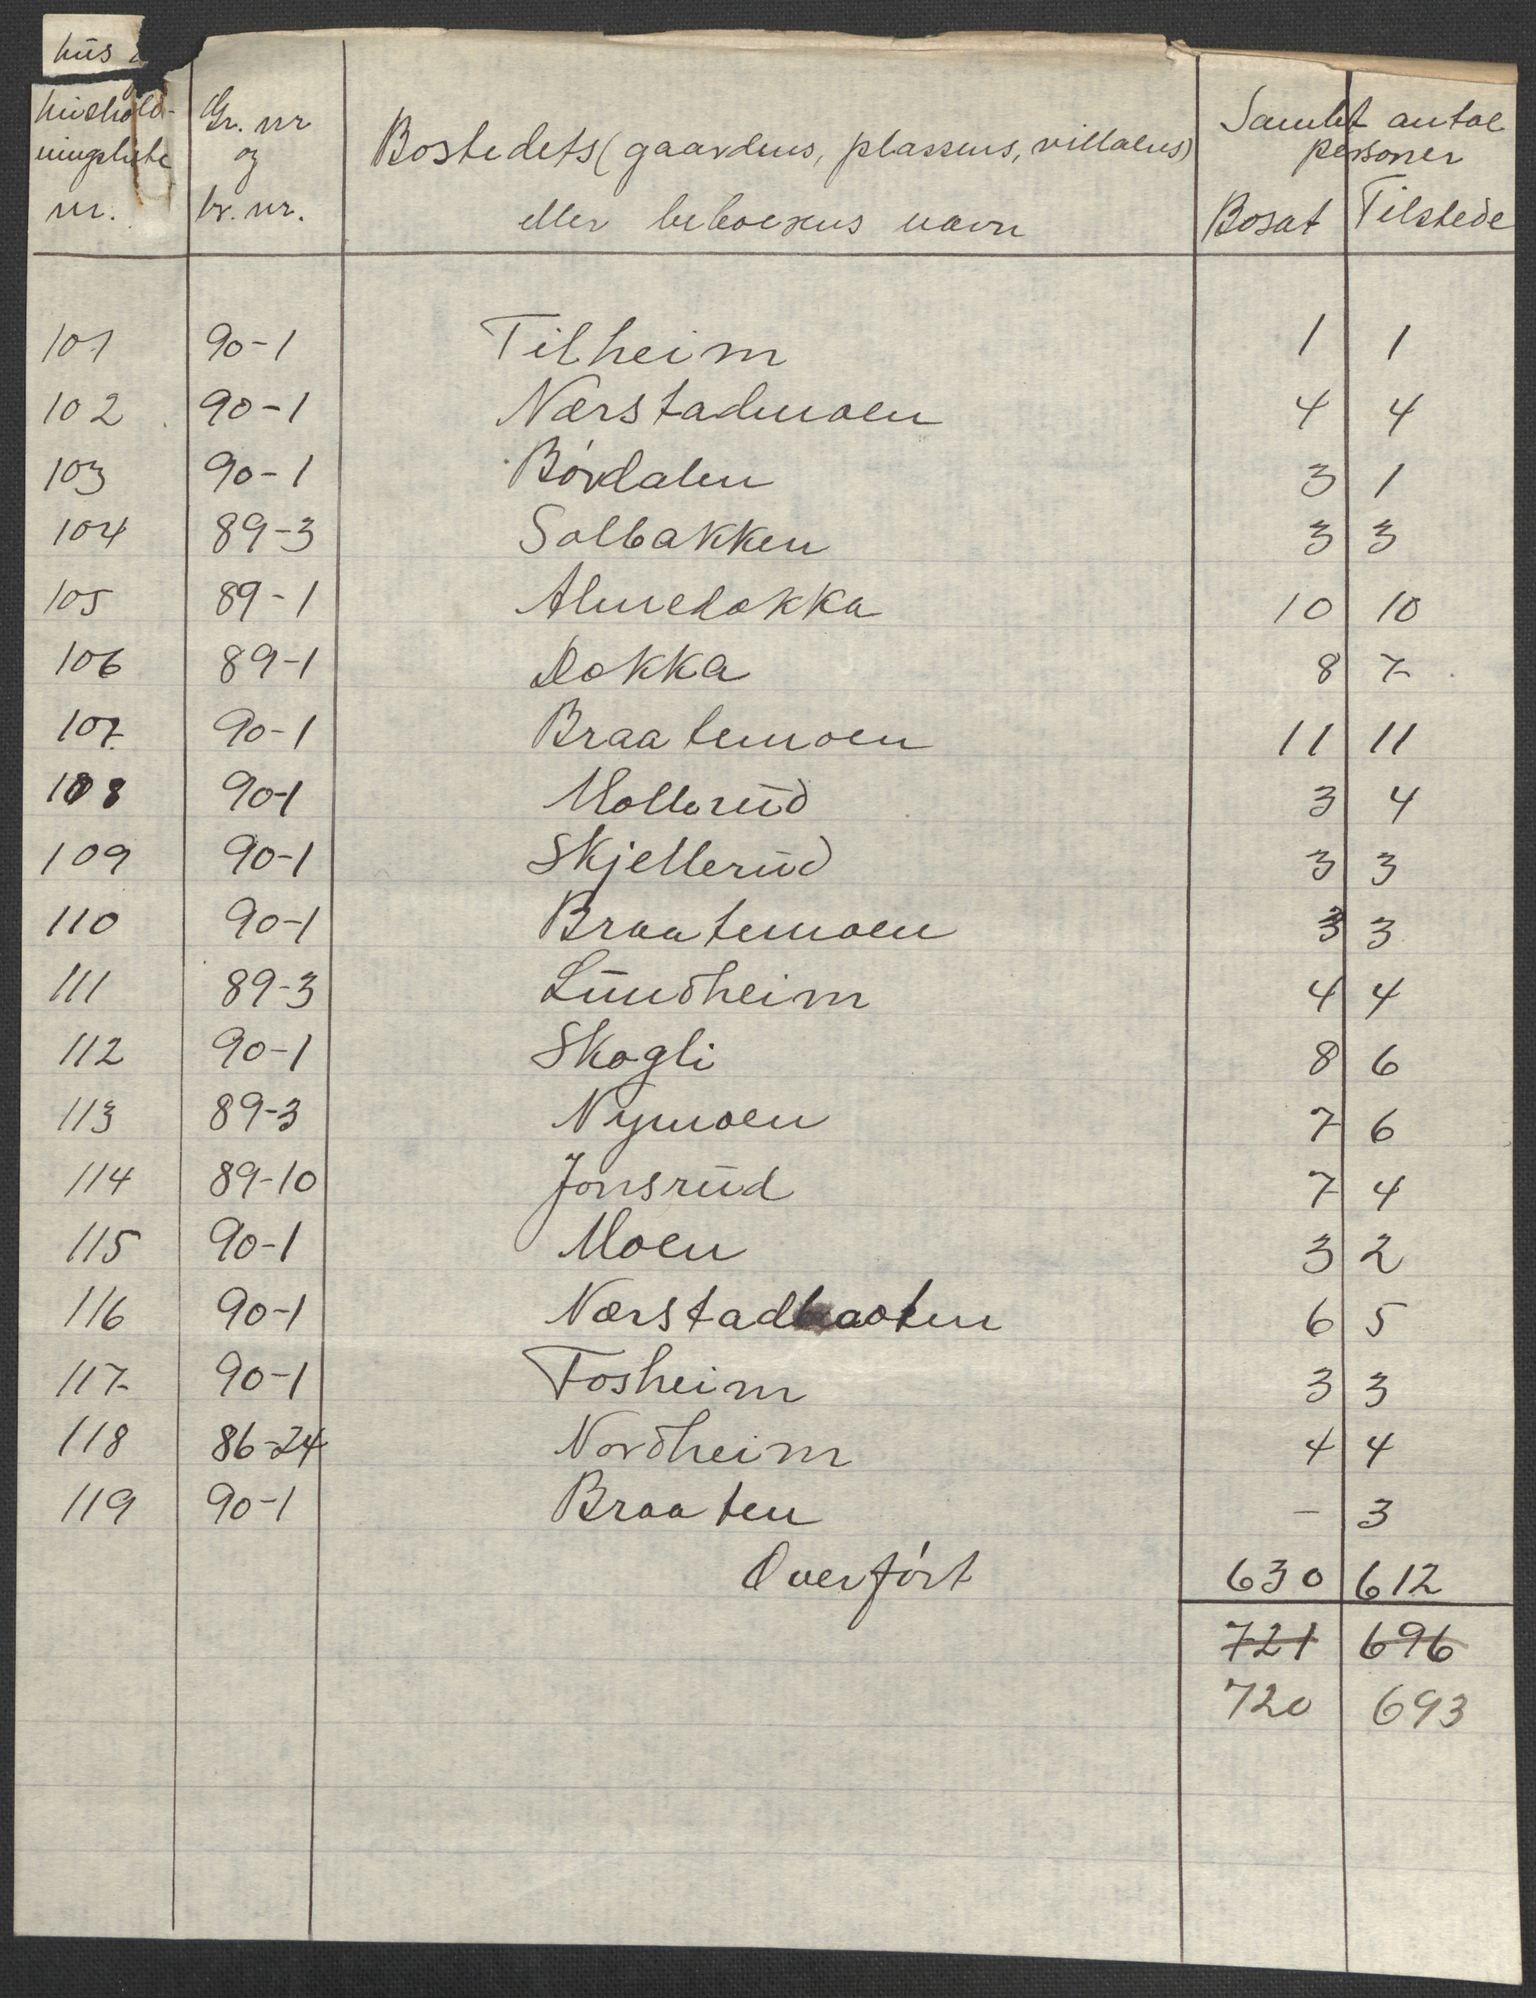 hus
hushold- Gr. nr Samlet antal
ningsliste og Bostedets (gaardens, plassens, villaens) personer
nr. br. nr. eller beboerens navn Bosat Tilstede
101 90-1 Tilheim 1 1
102 90-1 Nærstadmoen 4 4
103 90-1 Bórdalen 3 1
104 89-3 Solbakken 3 3
105 89-1 Almedokka 10 10
106 89-1 Dokka 8 7
107 90-1 Braatemoen 11 11
108 90-1 Mollerud 3 4
109 90-1 Skjellerud 3 3
110 90-1 Braatemoen 3 3
111 89-3 Lundheim 4 4
112 90-1 Skogli 8 6
113 89-3 Nymoen 7 6
114 89-10 Jonsrud 7 4
115 90-1 Moen 3 2
116 90-1 Nærstadbraaten 6 5
117 90-1 Fosheim 3 3
118 86-24 Nordheim 4 4
119 90-1 Braaten - 3
Overfórt 630 612
721 696
720 693